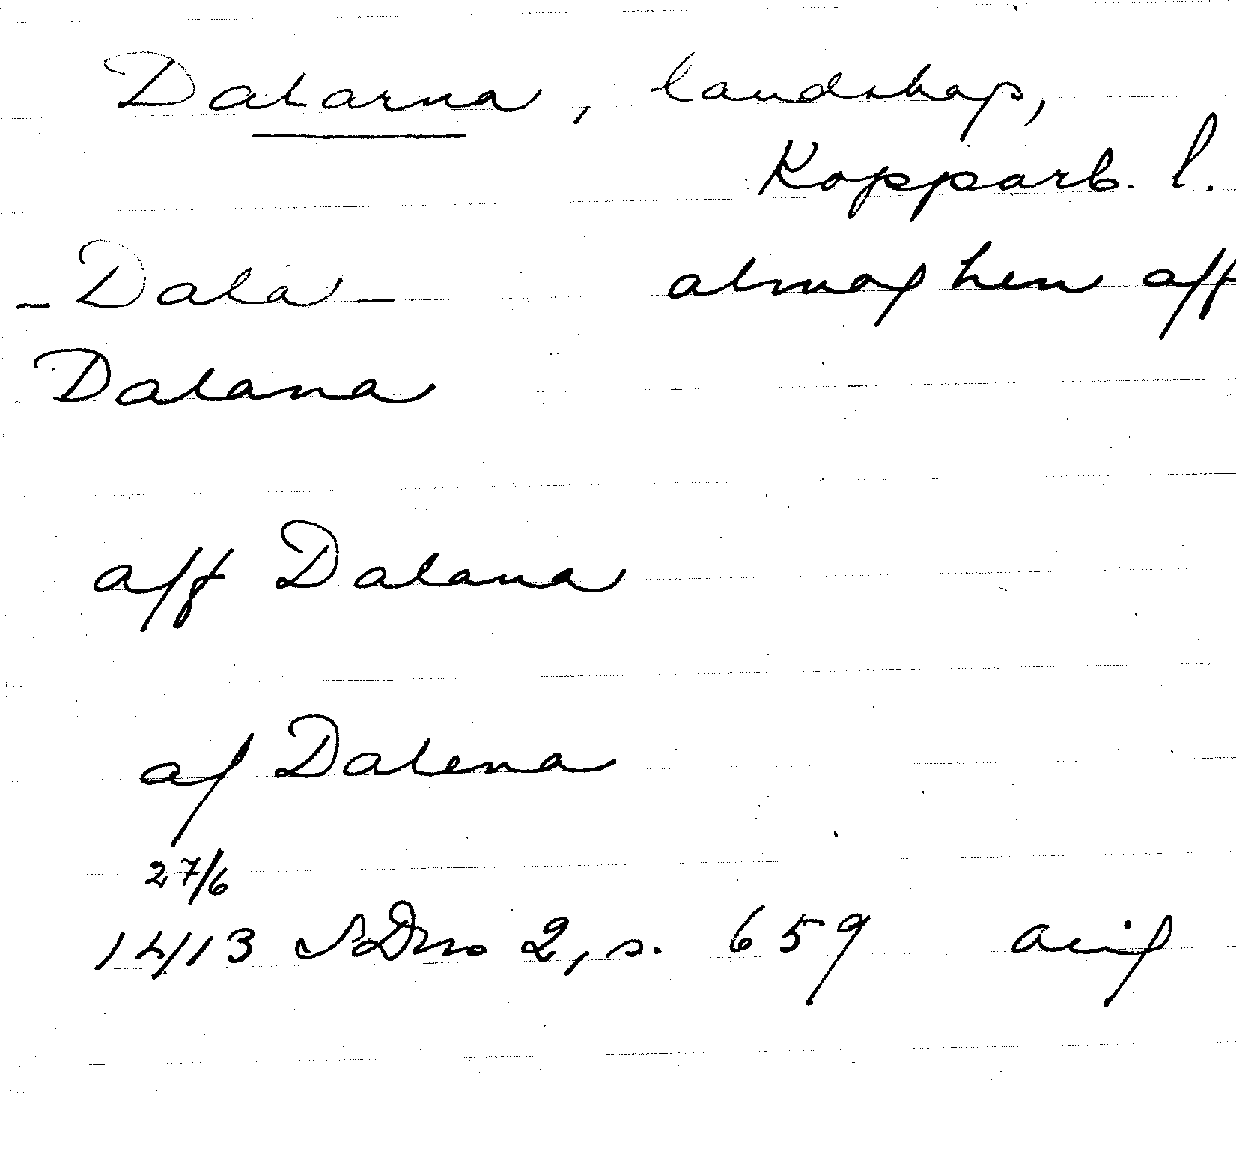 Dalarna, landskap,
Kopparb. l.
-Dala- almoghen aff
Dalana
aff Dalana
af Dalena
27/6
1413 SDns 2, s. 659 avif